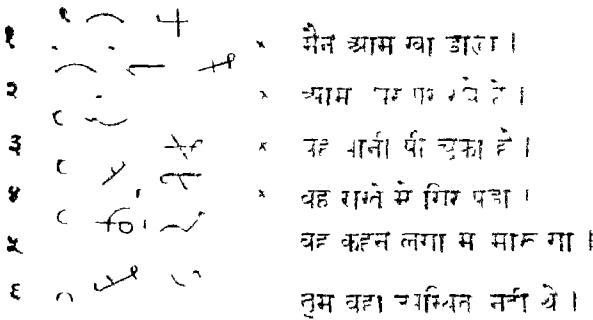 १ × मैंने आम खा डाला ।
२ × आम घर पर रखे हैं ।
३ × वह पानी पी चुका है ।
४ × वह रास्ते में गिर पड़ा ।
५ वह कहने लगा मारू गा ।
६ तुम वहा नहीं थे ।